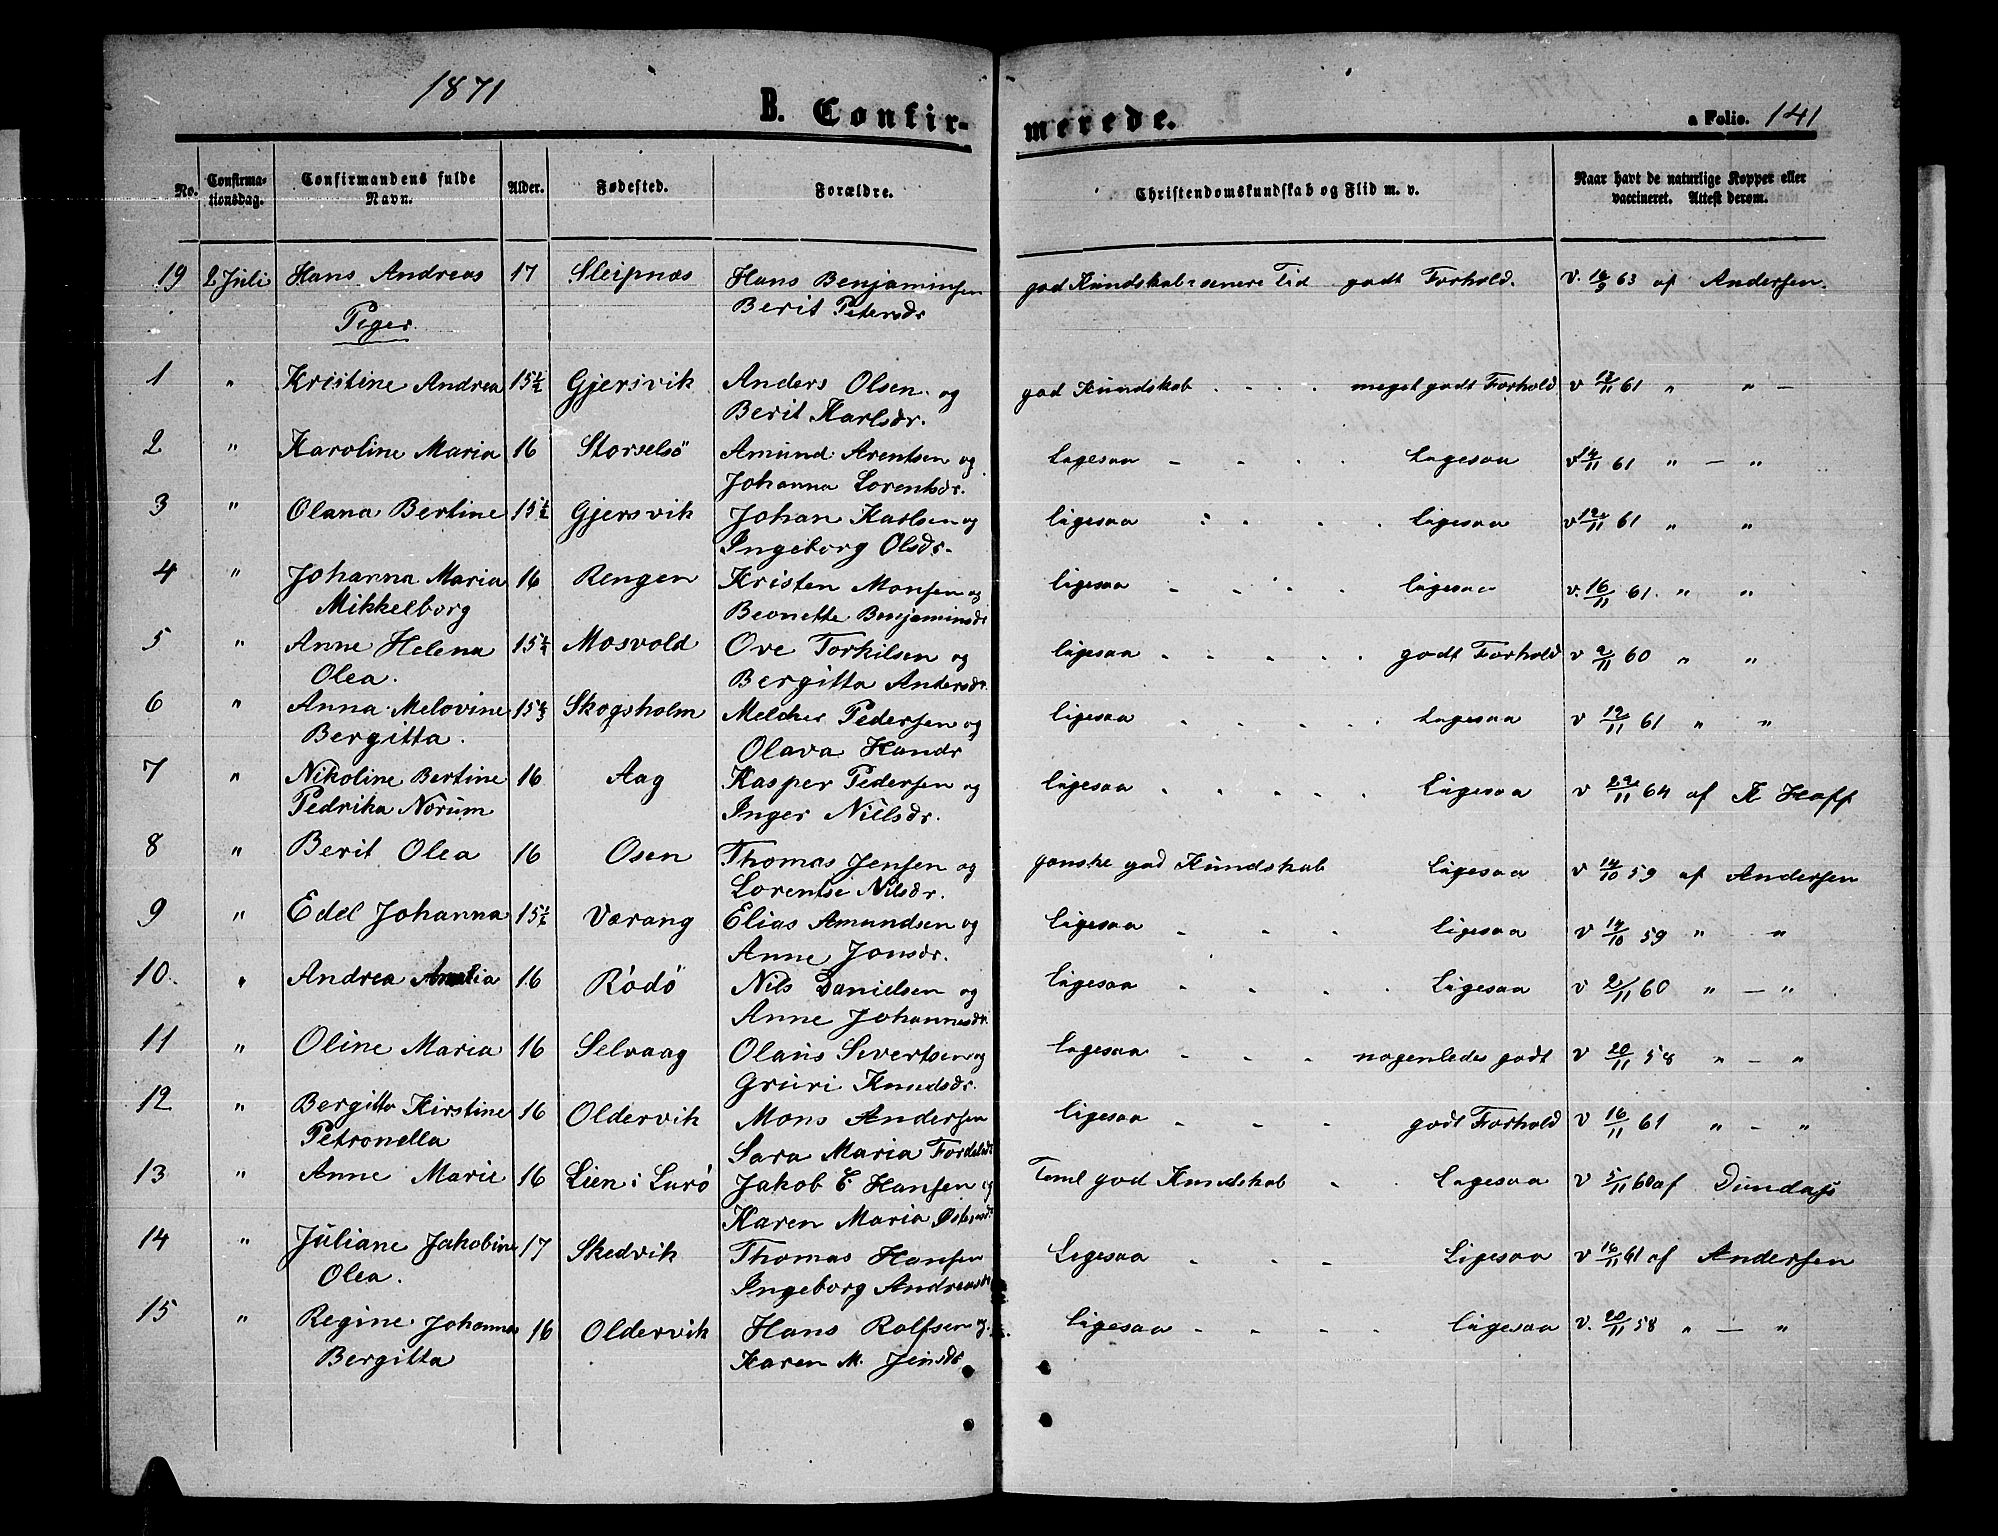 1871
B. Confirmerede.
a Folio. 141
No. Confirmationsdag. Confirmandens fulde Navn. Alder. Fødested. Forældre. Christendomskundskab og Flid m. v. Naar havt de naturlige Kopper eller vaccineret. Attest derom.
19 2 Juli Hans Andreas 17 Sleipnæs Hans Benjaminsen god Kundskab senere Tid godt Forhold. v. 63 af Andersen.
Berit Petersdr
Piger.
1 " Kristine Andrea 15½ Gjersvik Anders Olsen og god Kundskab meget godt Forhold v 12/11 61 " " -
Berit Karlsdr.
2 " Karoline Maria 16 Storselsö Amund Arentsen og Ligesaa - - - - Ligesaa v 14/11 61 " - "
Johanna Lorentsdr.
3 " Olana Bertine 15½ Gjersvik Johan Karlsen og Ligesaa Ligesaa v 12/11 61 " "
Ingeborg Olsdr.
4 " Johanna Maria 16 Rengen Kristen Monsen og Ligesaa Ligesaa v. 16/11 61. " "
Mikkelborg Beonette Benjaminsdr
5 " Anne Helena Mosvold Ove Torkilsen og Ligesaa godt Forhold v 2/11 60 " "
Olea. Bergitta Andersdr.
6 " Anna Melovine Skogsholm Melcher Pedersen og Ligesaa Ligesaa v 12/11 61 " "
Bergitta. Olava Hansdr
7 " Nikoline Bertine 16 Aag Kasper Pedersen og Ligesaa Ligesaa v 29/11 64 af K Hoff
Pedrika Norum Inger Nilsdr.
8 " Berit Olea 16 Osen Thomas Jensen og ganske god Kundskab Ligesaa v 14/10 59 af Andersen
Lorentse Nilsdr.
9 " Edel Johanna 15½ Værang Elias Amundsen og Ligesaa Ligesaa v 14/10 59 " - "
Anne Jonsdr.
10. " Andrea Amalia 16 Rödö Nils Danielsen og Ligesaa Ligesaa v 2/11 60 " - "
Anne Johannesdr.
11 " Oline Maria 16 Selvaag Olaus Sivertsen og Ligesaa nogenledes godt v 20/11 58 " - "
Gruri Knudsdr.
12 " Bergitta Kirstine 16 Oldervik Mons Andersen Ligesaa godt Forhold v 16/11 61 " - "
Petronella Sara Maria
13 " Anne Marie 16 Lien i Lurö Jakob E Hansen og Teml god Kundskab Ligesaa v 5/11 60 af Dundass
Karen Maria
14 " Juliane Jakobine 17 Skedvik Thomas Hansen Ligesaa Ligesaa v 16/11 61 af Andersen
Olea. Ingeborg Andreasdr
15 " Regine Johanna 16 Oldervik Hans Rolfsen og Ligesaa Ligesaa v. 20/11 58 " - "
Bergitta Karen M. Jensdr